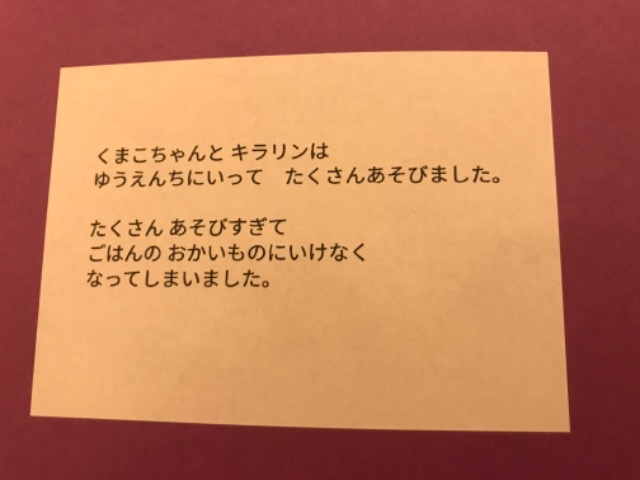 くまこちゃんと キラリンは
ゆうえんちにいって　たくさんあそびました。
たくさん あそびすぎて
ごはんの おかいものにいけなく
なってしまいました。